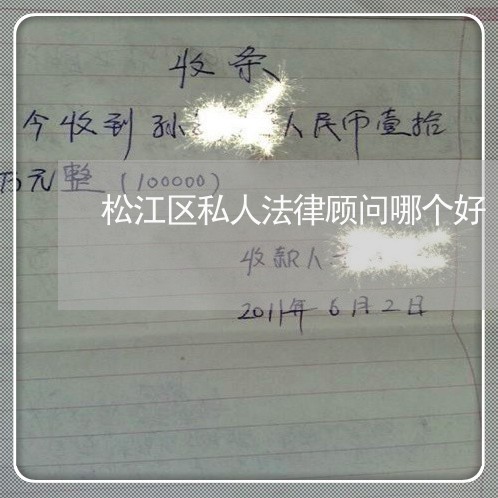 收条
今收到孙 人民币壹拾
万元整(100000)
松江区私人法律顾问哪个好
收款人
2011年6月2日